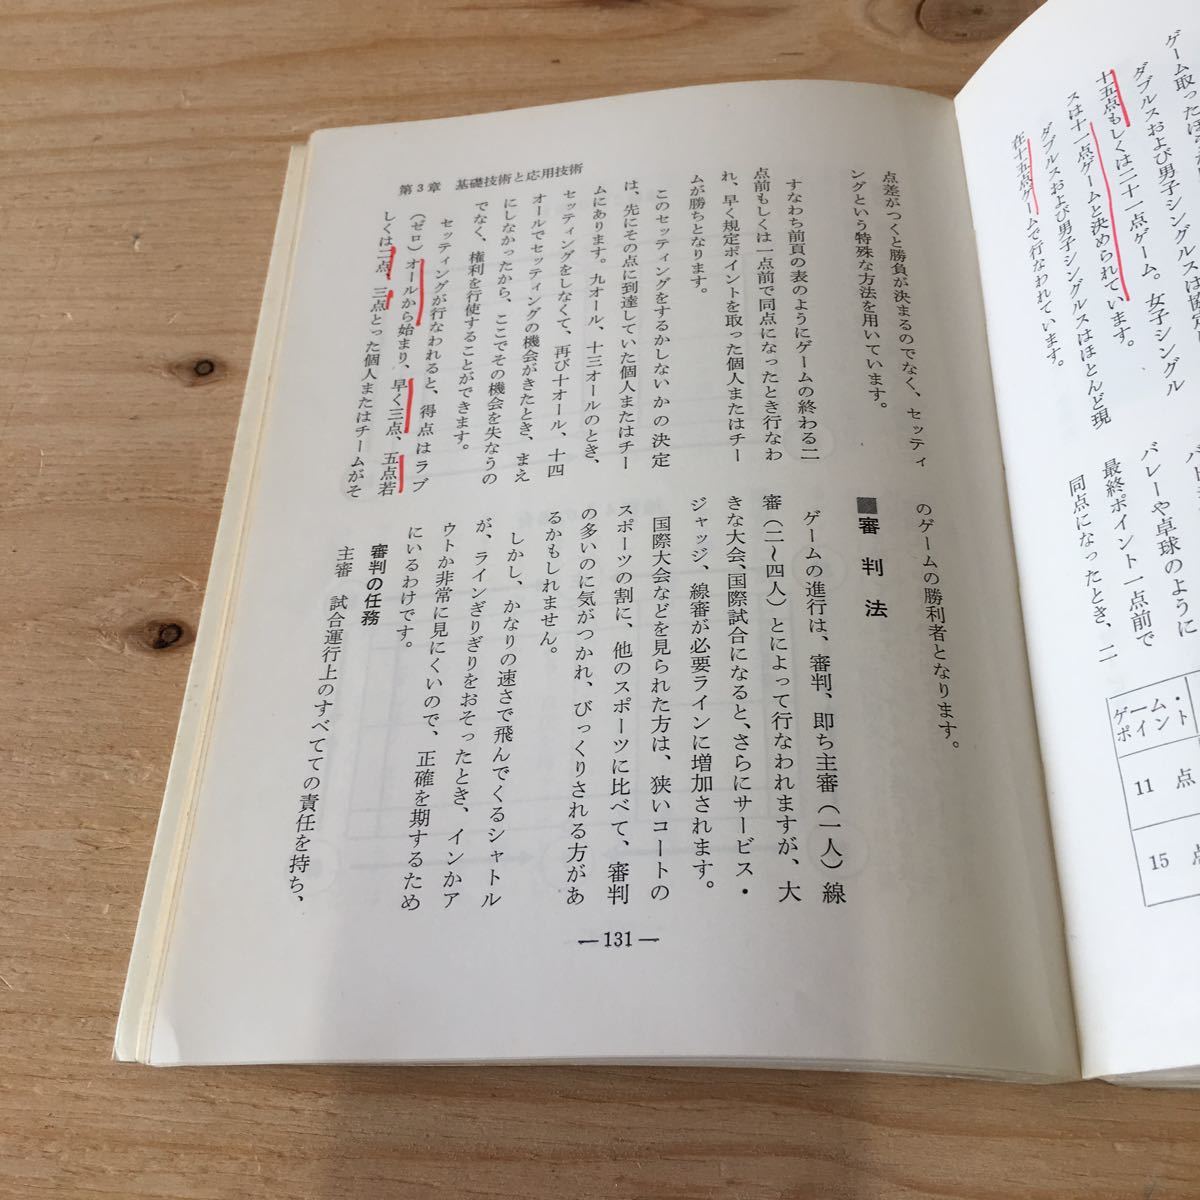 ゲーム取ったほ
ダブルスおよび男子シングルスは協定に
十五点もしくは二十一点ゲーム。女子シングル
スは十一点ゲームと決められています。
ダブルスおよび男子シングルスはほとんど現
在十五点ゲームで行なわれています。
バレーや卓球のように
最終ポイント一点前で
同点になったとき、二
ゲーム・
ポイント
11 点
15 点
第3章 基礎技術と応用技術
点差がつくと勝負が決まるのでなく、セッティ
ングという特殊な方法を用いています。
すなわち前頁の表のようにゲームの終わる二
点前もしくは一点前で同点になったとき行なわ
れ、早く規定ポイントを取った個人またはチー
ムが勝ちとなります。
このセッティングをするかしないかの決定
は、先にその点に到達していた個人またはチー
ムにあります。九オール、十三オールのとき、
セッティングをしなくて、再び十オール、十四
オールでセッティングの機会がきたとき、まえ
にしなかったから、ここでその機会を失なうの
でなく、権利を行使することができます。
セッティングが行なわれると、得点はラブ
(ゼロ)オールから始まり、早く三点、五点若
しくは二点、三点とった個人またはチームがそ
のゲームの勝利者となります。
■審判法
ゲームの進行は、審判、即ち主審(一人)線
審(二〜四人)とによって行なわれますが、大
きな大会、国際試合になると、さらにサービス・
ジャッジ、線審が必要ラインに増加されます。
国際大会などを見られた方は、狭いコートの
スポーツの割に、他のスポーツに比べて、審判
の多いのに気がつかれ、びっくりされる方があ
るかもしれません。
しかし、かなりの速さで飛んでくるシャトル
が、ラインぎりぎりをおそったとき、インかア
ウトか非常に見にくいので、正確を期するため
にいるわけです。
審判の任務
主審 試合運行上のすべてての責任を持ち、
—131—